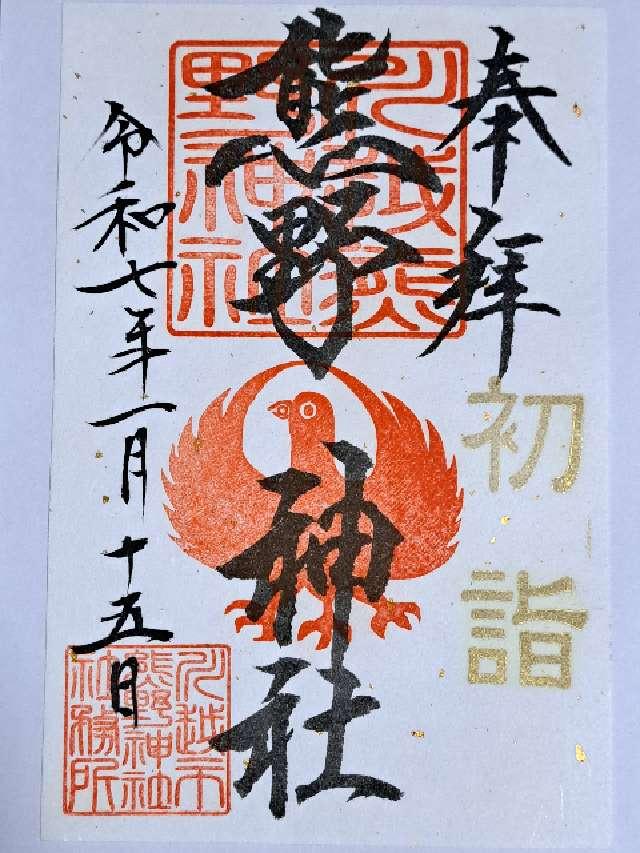 奉拝
初詣
川越熊野神社
熊野神社
令和七年一月十五日
川越市
熊野神社
社務所